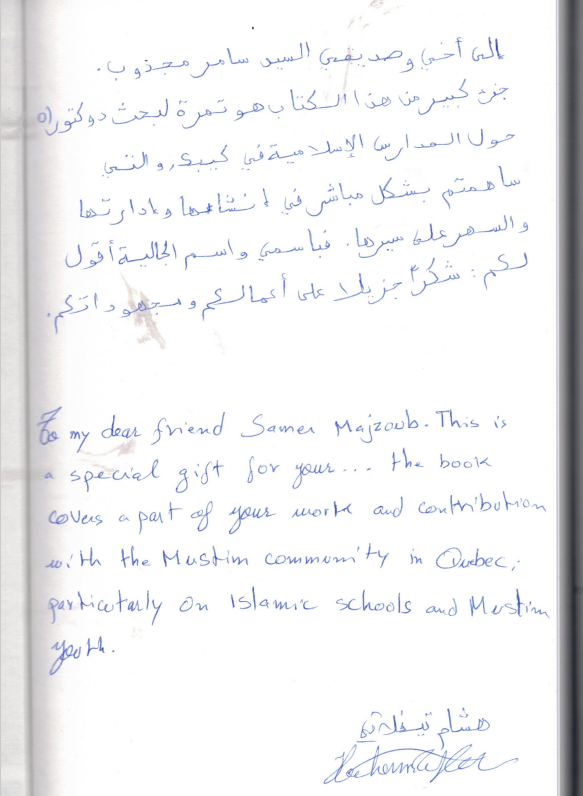 الى أخي وصديقي السيد سامر مجذوب.
جزء كبير من هذا الكتاب هو ثمرة لبحث دوكتوراه
حول المدارس الإسلامية في كيبك، والتي
ساهمتم بشكل مباشر في إنشاءها وادارتها
والسهر على سيرها. فباسمي واسم الجالية أقول
لكم: شكراً جزيلا على أعمالكم ومجهوداتكم.
To my dear friend Samer Majzoub. This is
a special gift for your... the book
covers a part of your work and contribution
with the Muslim community in Quebec,
particularly on Islamic schools and Muslim
youth.
هشام